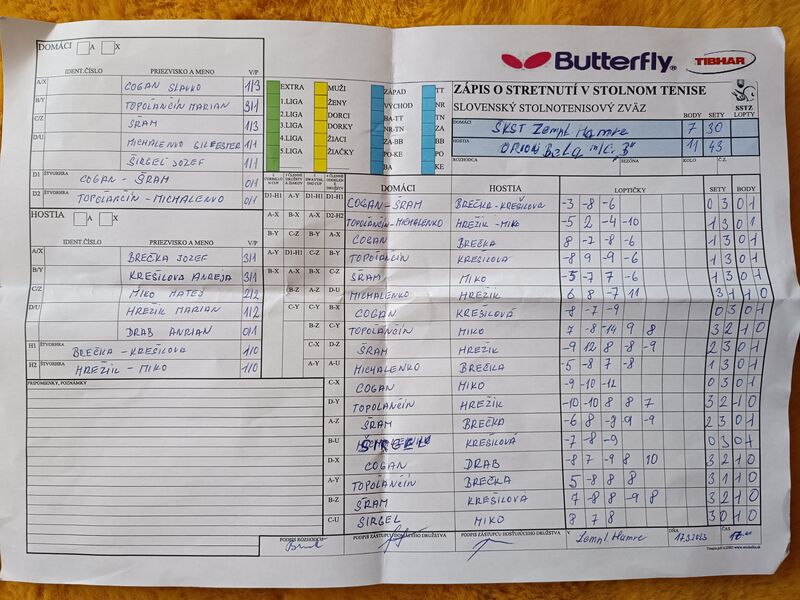 DOMÁCI A X
IDENT.ČÍSLO PRIEZVISKO A MENO V/P
A/X COGAN SLAVKO 1/3
B/Y TOPOĽANČÍN MARIAN 3/1
C/Z ŠRAM 1/3
D/U MICHALENKO SILVESTER 1/1
ŠIRGEL JOZEF 1/1
D1 ŠTVORHRA COGAN - ŠRAM 0/1
D2 TOPOĽANČÍN - MICHALENKO 0/1
HOSTIA A X
IDENT.ČÍSLO PRIEZVISKO A MENO V/P
A/X BREČKA JOZEF 3/1
B/Y KREŠILOVA ANDREJA 3/1
C/Z MIKO MATEJ 2/2
D/U HREŽIK MARIAN 1/2
DRAB 0/1
H1 ŠTVORHRA BREČKA - KREŠILOVA 1/0
H2 ŠTVORHRA HREŽIK - MIKO 1/0
PRIPOMIENKY, POZNÁMKY
EXTRA MUŽI
1.LIGA ŽENY
2.LIGA DORCI
3.LIGA DORKY
4.LIGA ŽIACI
5.LIGA ŽIAČKY
ZÁPAD TT
VÝCHOD NR
BA-TT TN
NR-TN ZA
ZA-BB BB
PO-KE PO
BA KE
Butterfly TIBHAR
ZÁPIS O STRETNUTÍ V STOLNOM TENISE
SLOVENSKÝ STOLNOTENISOVÝ ZVÄZ
SSTZ
BODY SETY LOPTY
DOMÁCI ŠKST Zempl. Hamre 7 30
HOSTIA ORION Belá 11 43
ROZHODCA SEZÓNA KOLO Č.
DOMÁCI HOSTIA LOPTIČKY SETY BODY
D1-H1 A-Y D1-H1 D1-H1 COGAN - ŠRAM BREČKA - KREŠILOVA -3 -8 -6 0 3 0 1
A-X B-X A-X D2-H2 TOPOĽANČÍN - MICHALENKO HREŽIK - MIKO -5 2 -4 -10 1 3 0 1
B-Y C-Z B-Y A-X COGAN BREČKA 8 -7 -8 -6 1 3 0 1
A-Y D1-H1 C-Z B-Y TOPOĽANČÍN KREŠILOVA -8 9 -9 -6 1 3 0 1
B-X A-X B-X C-Z ŠRAM MIKO -5 -7 7 -6 1 3 0 1
B-Z A-Z D-U MICHALENKO HREŽIK 6 8 -7 11 3 1 1 0
C-Y C-Y B-X COGAN KREŠILOVÁ -8 -7 -9 0 3 0 1
B-Z C-Y TOPOĽANČÍN MIKO 7 -8 -14 9 8 3 2 1 0
C-X D-Z ŠRAM HREŽIK -9 12 8 -8 -9 2 3 0 1
A-Y A-U MICHALENKO BREČKA -5 -8 7 -8 1 3 0 1
C-X COGAN MIKO -9 -10 -12 0 3 0 1
D-Y TOPOĽANČÍN HREŽIK -10 -10 8 8 7 3 2 1 0
A-Z ŠRAM BREČKA -6 8 -9 9 -9 2 3 0 1
B-U SIRGEL KREŠILOVÁ -7 -8 -9 0 3 0 1
D-X COGAN DRAB -8 7 -9 8 10 3 2 1 0
A-Y TOPOĽANČÍN BREČKA 5 -8 8 8 3 1 1 0
B-Z ŠRAM KREŠILOVA 7 -8 8 -9 8 3 2 1 0
C-U ŠIRGEL MIKO 8 7 8 3 0 1 0
PODPIS ROZHODCU PODPIS ZÁSTUPCU DOMÁCEHO DRUŽSTVA PODPIS ZÁSTUPCU HOSŤUJÚCEHO DRUŽSTVA V Zempl. Hamre DŇA 17.3.2023 ČAS